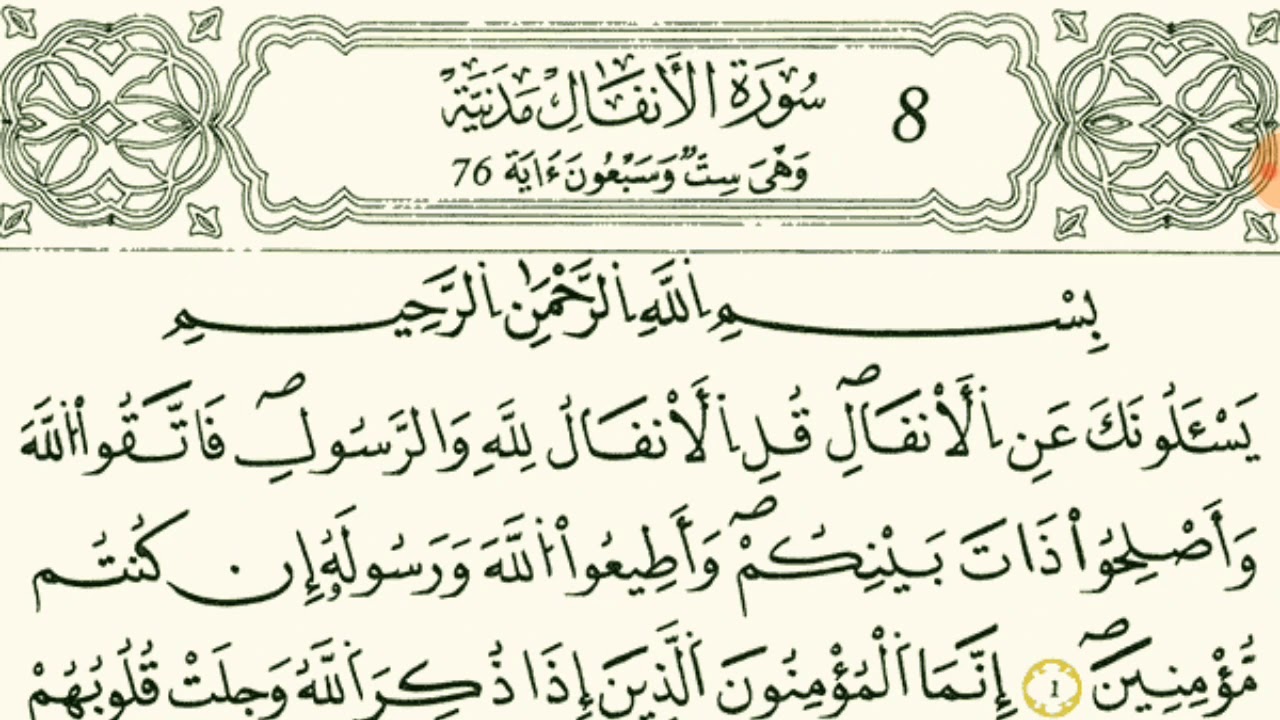 سُورَةُ الأَنفَالِ مَدَنِيَّةٌ 8
وَهْيَ سِتٌّ وَسَبْعُونَ ءَايَةً 76
بِسْمِ اِللَّهِ اِلرَّحْمَٰنِ اِلرَّحِيمِ
يَسْـَٔلُونَكَ عَنِ اِلَانفَالِۖ قُلِ اِلَانفَالُ لِلهِ وَالرَّسُولِۖ فَاتَّقُوا۟ اُللَّهَ
وَأَصْلِحُوا۟ ذَاتَ بَيْنِكُمْۖ وَأَطِيعُوا۟ اُللَّهَ وَرَسُولَهُۥ إِن كُنتُم
مُّؤْمِنِينَۖ 1 إِنَّمَا اَلْمُؤْمِنُونَ اَلَّذِينَ إِذَا ذُكِرَ اَللَّهُ وَجِلَتْ قُلُوبُهُمْ